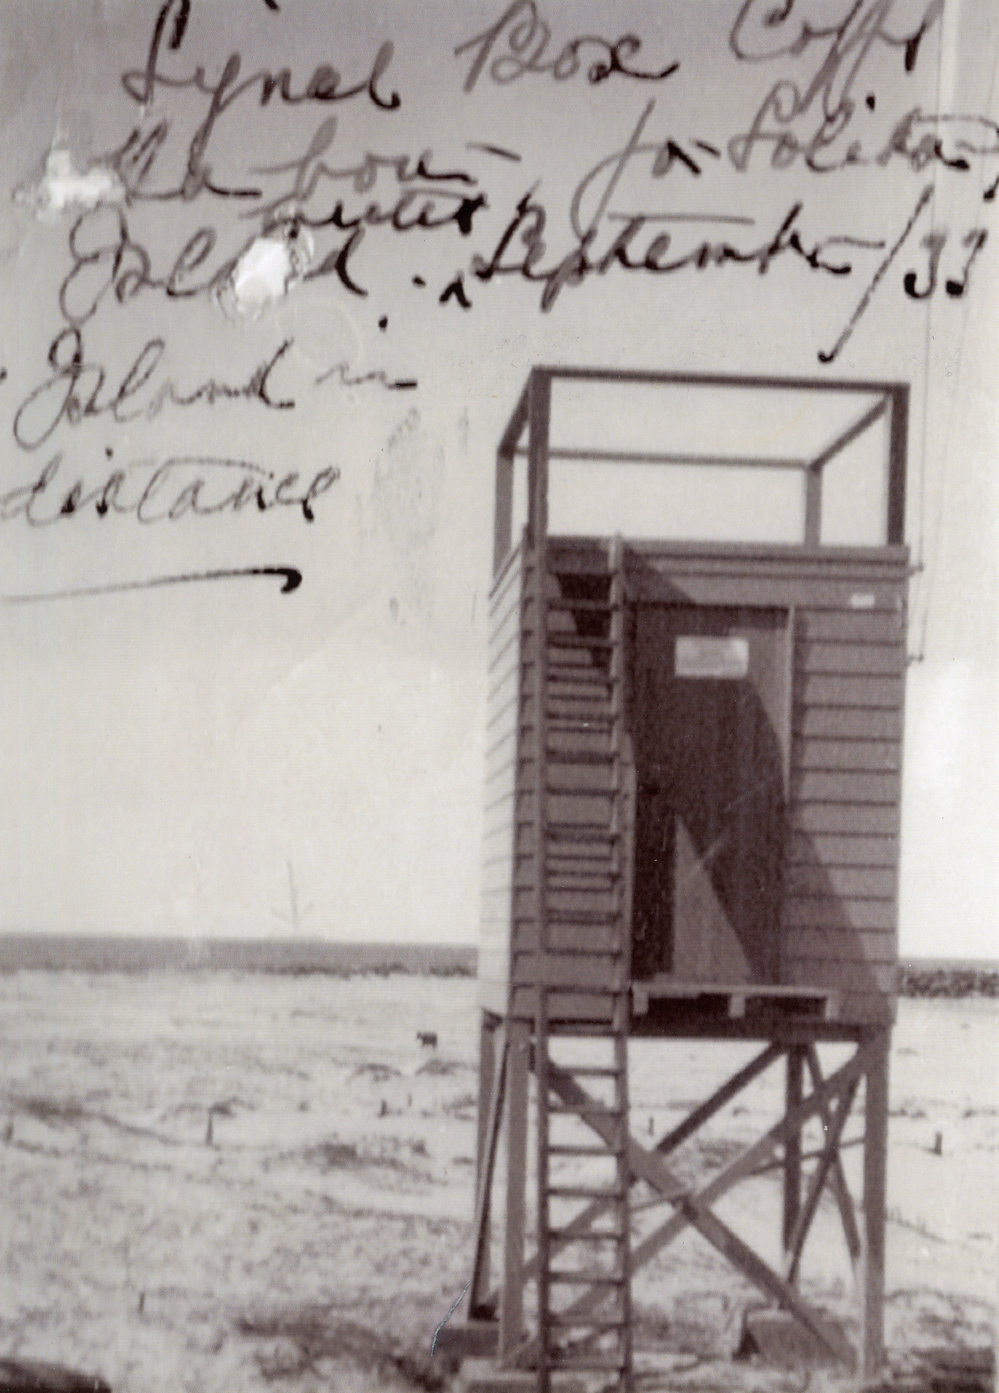 Synal Box Coffs
Harbour for Solitary
Island. September /33
Island in
distance